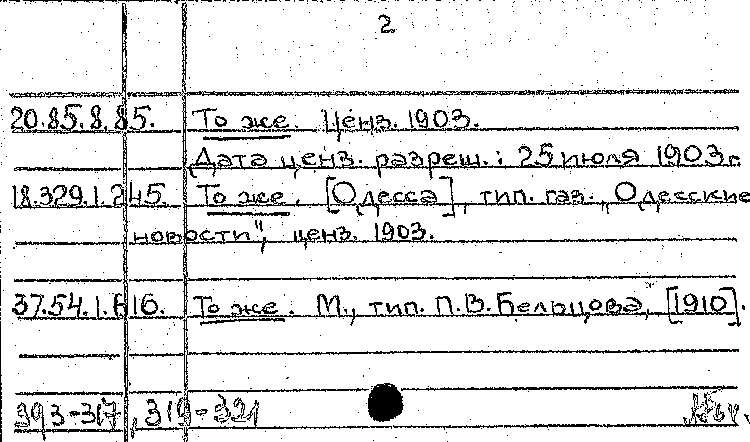 2
20.85.8.85. То же. Ценз. 1903.
Дата ценз. разреш.: 25 июля 1903 г.
18.329.1.245 То же. [Одесса], тип. газ. „Одесские
новости", ценз. 1903.
37.54.1.616. То же. М., тип. П.В. Бельцова, [1910].
393-317, 319-321